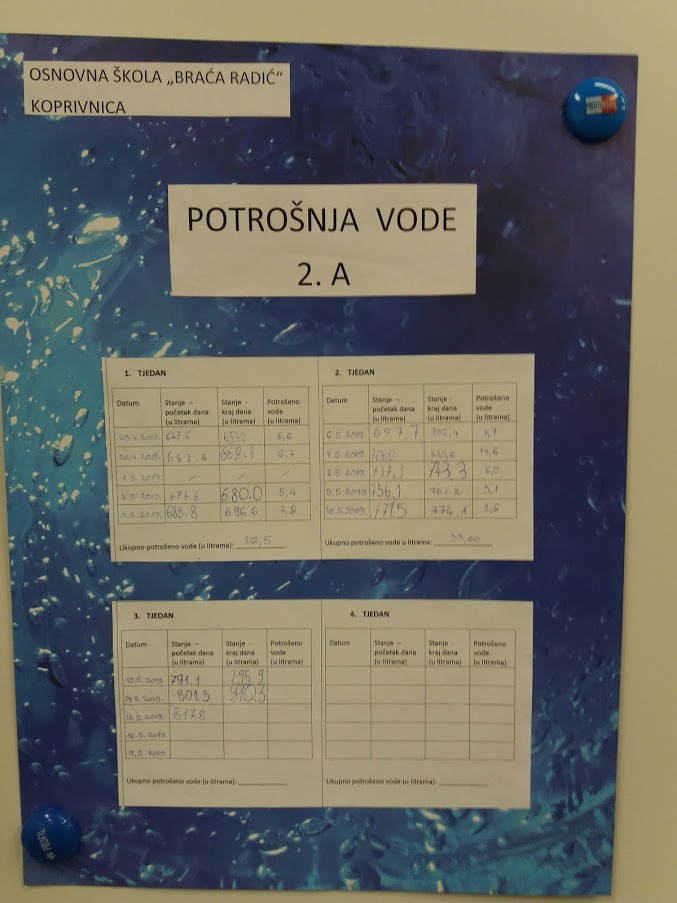 OSNOVNA ŠKOLA „BRAĆA RADIĆ“
KOPRIVNICA
POTROŠNJA VODE
2. A
1. TJEDAN
Datum Stanje – početak dana (u litrama) Stanje - kraj dana (u litrama) Potrošeno vode (u litrama)
29.4.2019. 647.6 6,6
30.4.2019. 662.6 669.3 6,7
1.5.2019. / / /
2.5.2019. 674.6 680.0 5,4
3.5.2019. 688.8 696.6 7,8
Ukupno potrošeno vode (u litrama): 26,5
2. TJEDAN
Datum Stanje – početak dana (u litrama) Stanje - kraj dana (u litrama) Potrošeno vode (u litrama)
6.5.2019. 697,7 702,4 4,7
7.5.2019. 720,6 14,6
8.5.2019. 737,3 743.3 6,0
9.5.2019. 756,1 761.2 5,1
10.5.2019. 771.5 774.1 2,6
Ukupno potrošeno vode u litrama: 33,00
3. TJEDAN
Datum Stanje – početak dana (u litrama) Stanje - kraj dana (u litrama) Potrošeno vode (u litrama)
13.5.2019. 791.1 795.9
14.5.2019. 801.3 810.3
15.5.2019. 817.8
16.5.2019.
17.5.2019.
Ukupno potrošeno vode (u litrama):
4. TJEDAN
Datum Stanje – početak dana (u litrama) Stanje - kraj dana (u litrama) Potrošeno vode (u litrama)
Ukupno potrošeno vode (u litrama):
PROFIL